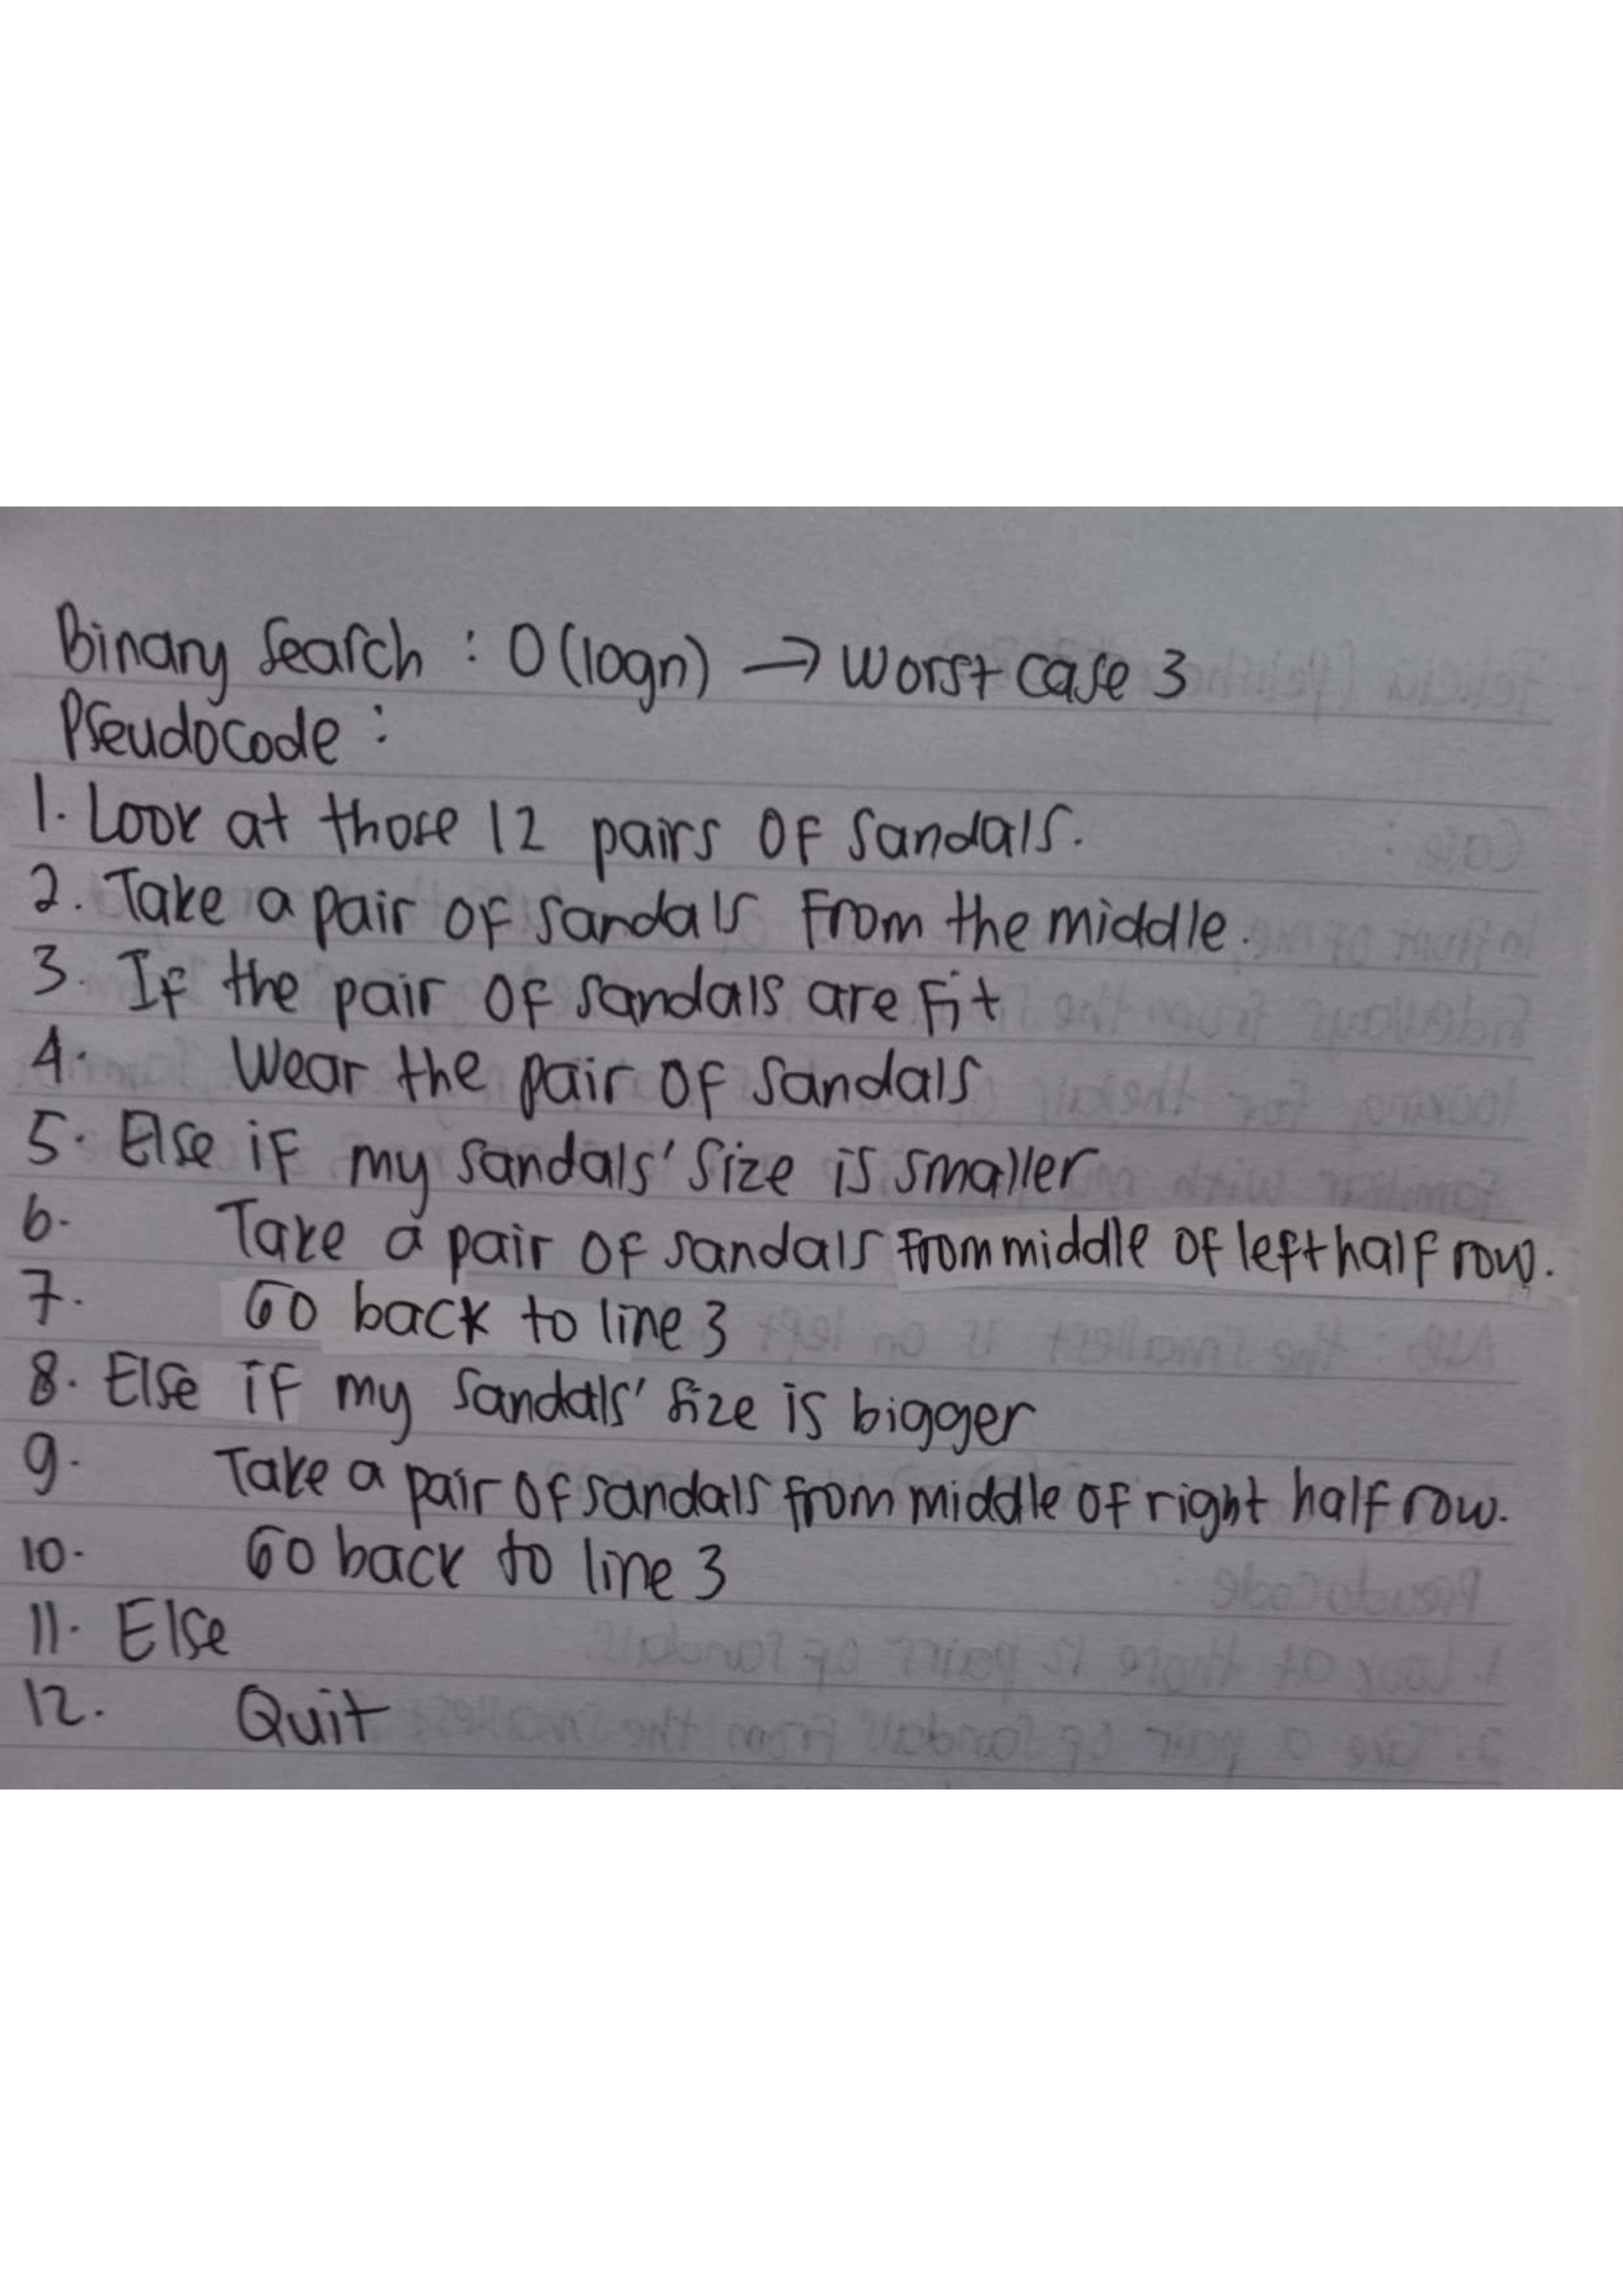 Binary Search : O(logn) → worst case 3
Pseudocode :
1. Look at those 12 pairs of sandals.
2. Take a pair of sandals from the middle.
3. If the pair of sandals are fit
4. Wear the pair of sandals
5. Else if my sandals' size is smaller
6. Take a pair of sandals from middle of left half row.
7. Go back to line 3
8. Else if my sandals' size is bigger
9. Take a pair of sandals from middle of right half row.
10. Go back to line 3
11. Else
12. Quit